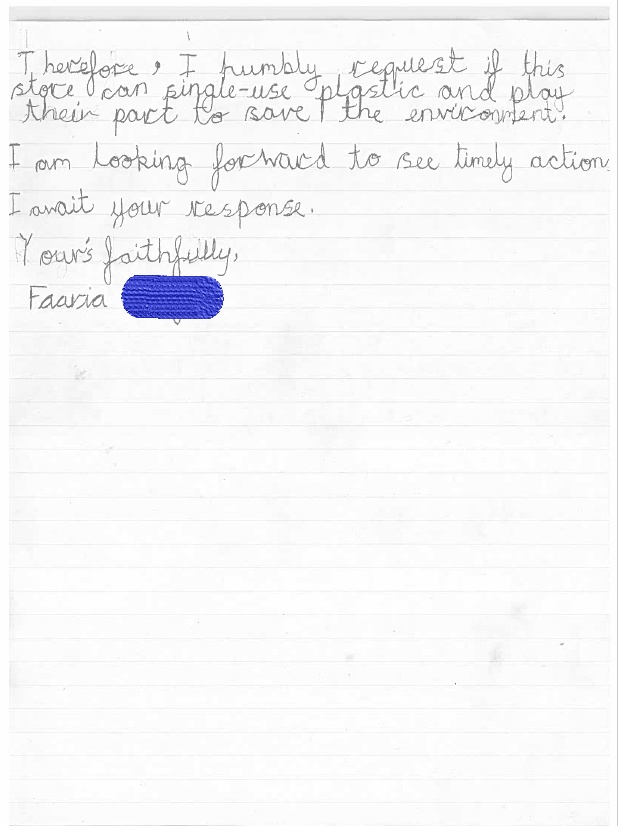 Therefore, I humbly request if this
store can single-use plastic and play
their part to save the environment.
I am looking forward to see timely action.
I await your response.
Your's faithfully,
Faaria